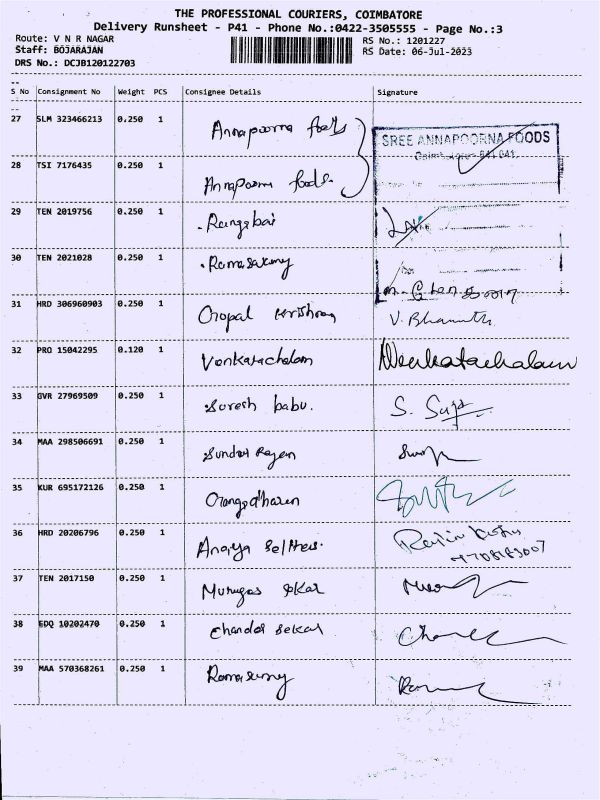 THE PROFESSIONAL COURIERS, COIMBATORE
Delivery Runsheet - P41 - Phone No.:0422-3505555 - Page No.:3
Route: V N R NAGAR
Staff: BOJARAJAN
DRS No.: DCJB120122703
RS No.: 1201227
RS Date: 06-Jul-2023
S No Consignment No Weight PCS Consignee Details Signature
27 SLM 323466213 0.250 1 Annapoorna foods
SREE ANNAPOORNA FOODS
Coimbatore-641 041.
28 TSI 7176435 0.250 1 Annapoorna foods.
29 TEN 2019756 0.250 1 Rangabai
30 TEN 2021028 0.250 1 Ramasamy
31 HRD 306960903 0.250 1 Gopal Krishnan V. Bhanuth
32 PRO 15042295 0.120 1 Venkatachalam Venkatachalam
33 GVR 27969509 0.250 1 Suresh babu. S.
34 MAA 298506691 0.250 1 Sundar Rajen
35 KUR 695172126 0.250 1 Gangadharan
36 HRD 20206796 0.250 1
37 TEN 2017150 0.250 1 Murugas
38 EDQ 10202470 0.250 1 Chandra Sekar
39 MAA 570368261 0.250 1 Ramasamy